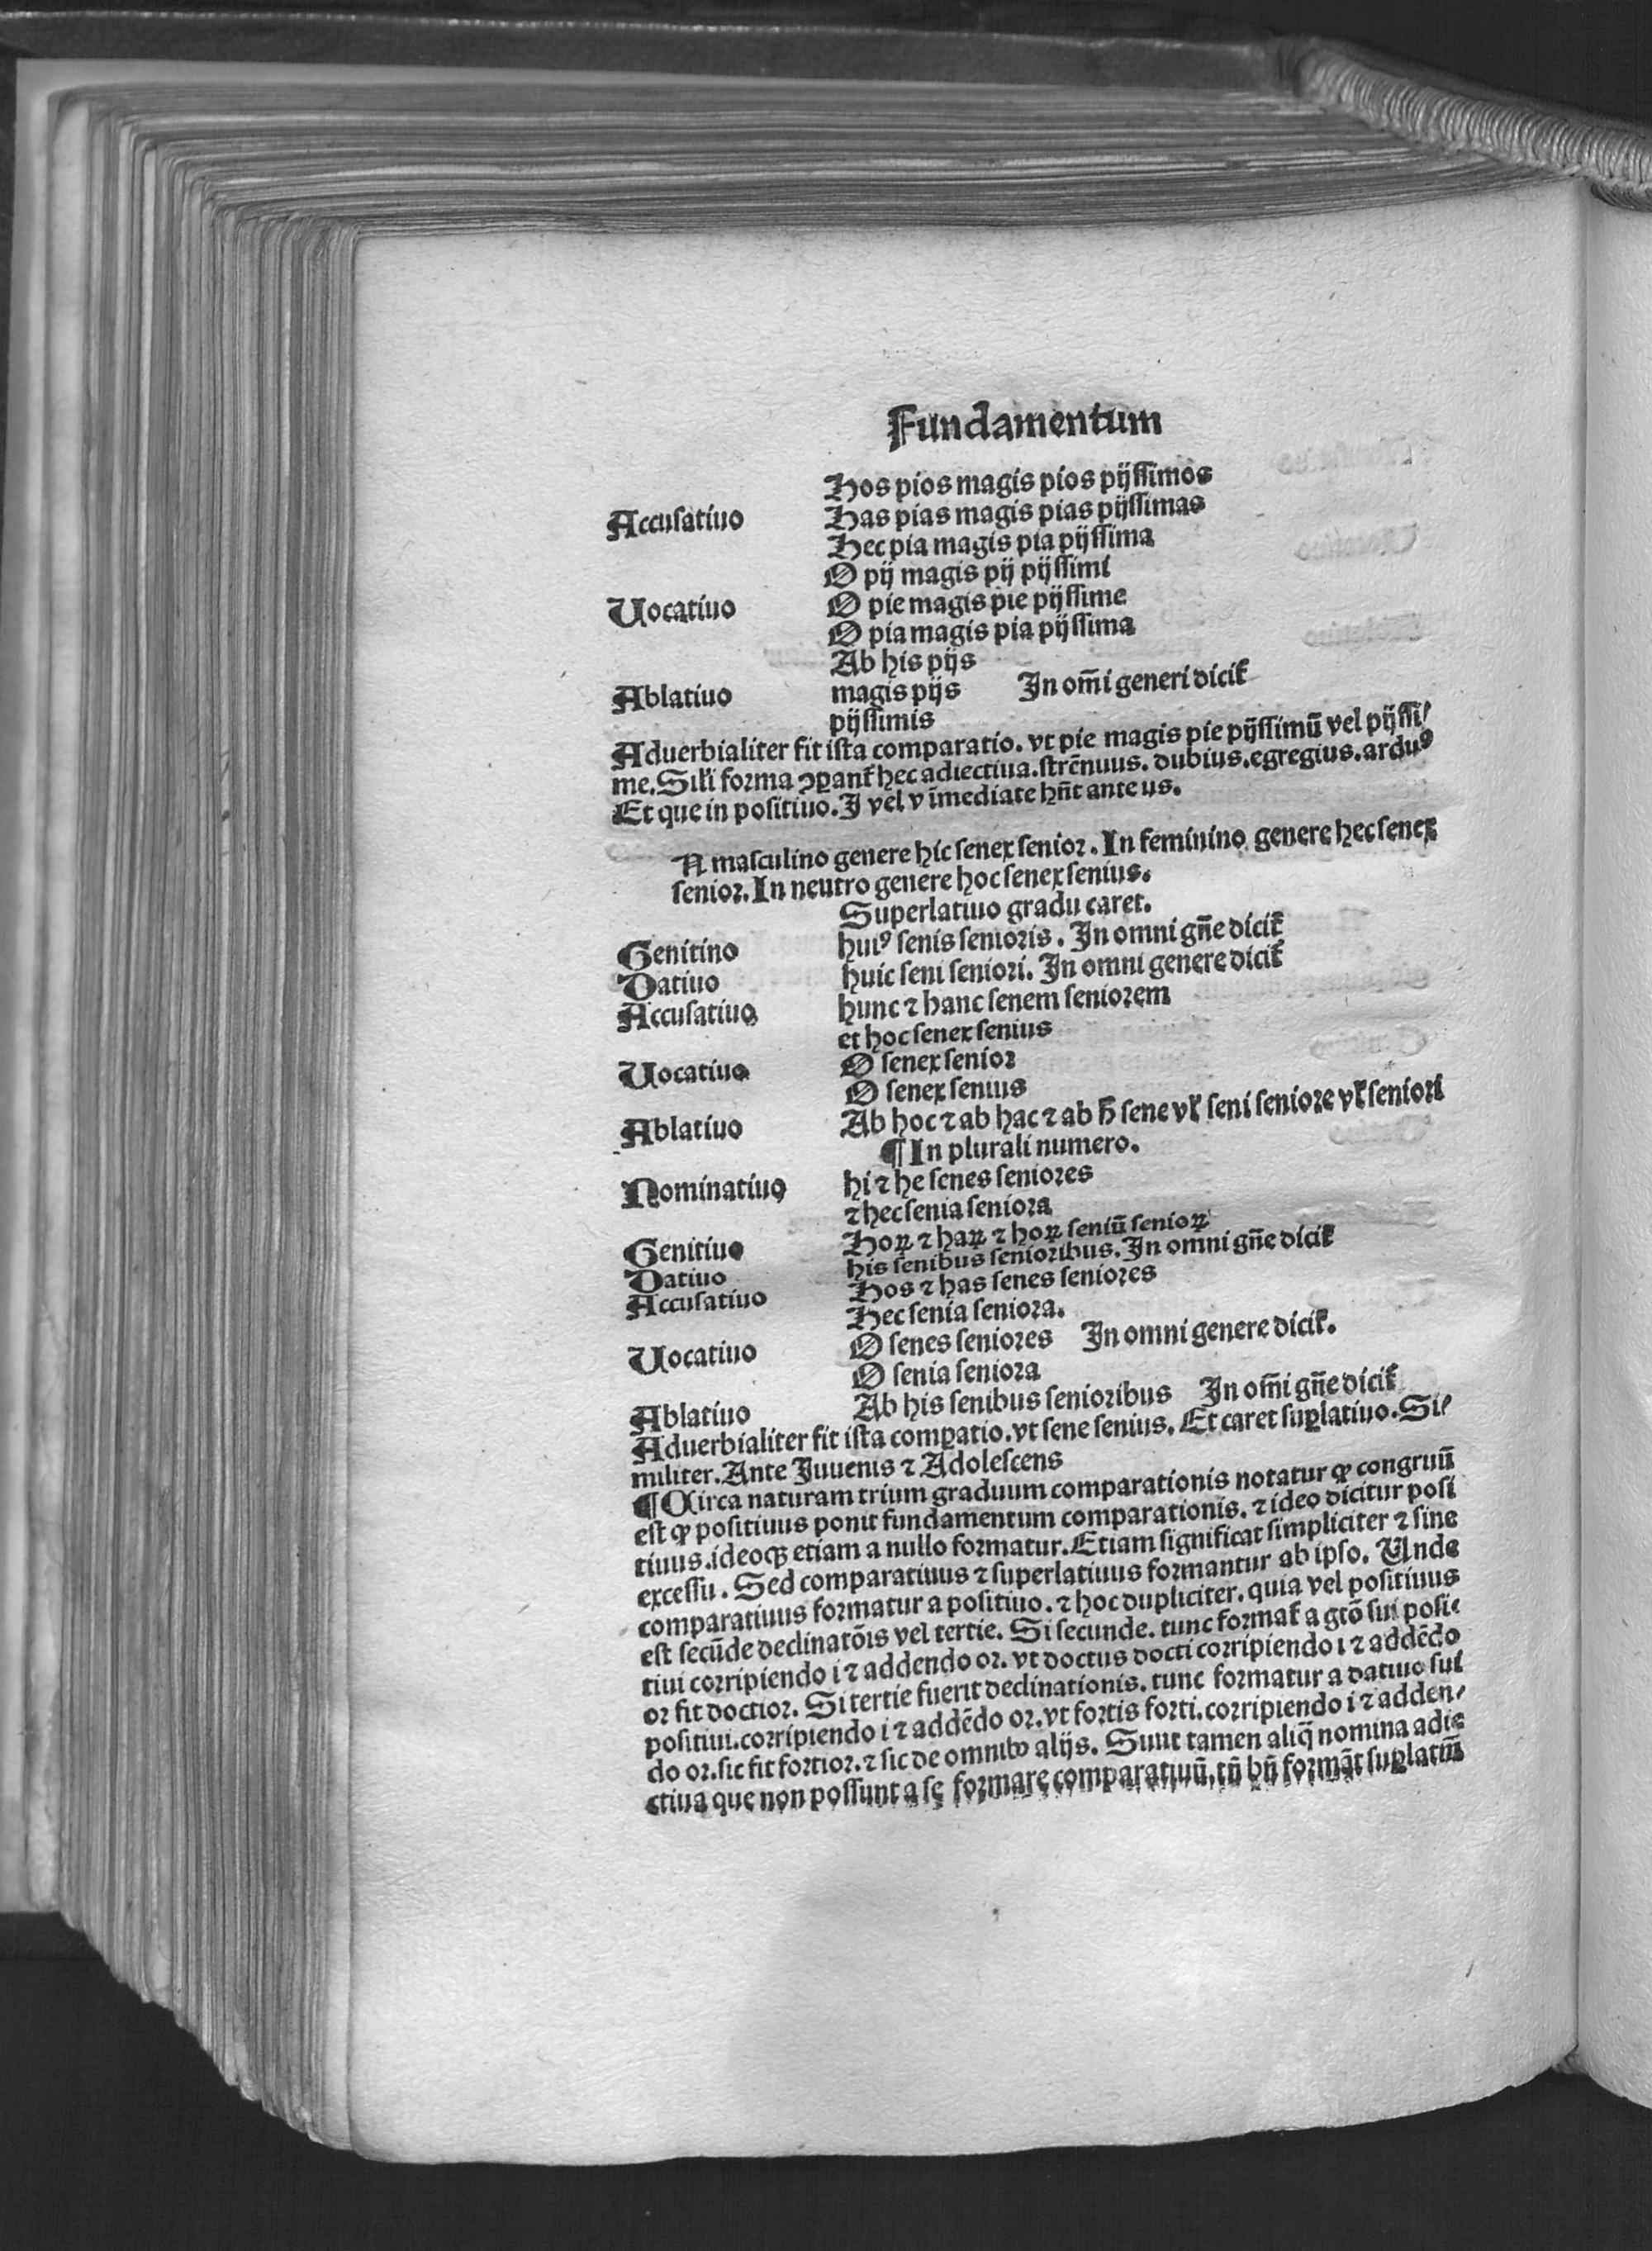 Fundamentum
Hos pios magis pios pijſſimos
Accuſatiuo Has pias magis pias pijſſimas
Hec pia magis pia pijſſima
O pij magis pij pijſſimi
Uocatiuo O pie magis pie pijſſime
O pia magis pia pijſſima
Ab his pijs
Ablatiuo magis pijs In om̄i generi dicit᷑
pijſſimis
Aduerbialiter fit iſta comparatio. vt pie magis pie pijſſimū vel pijſſi⸗
me. Sil'i forma ꝯꝑant᷑ hec adiectiua. ſtrēnuus. dubius. egregius. arduꝰ
Et que in poſitiuo. I vel v īmediate hn̄t ante us.
N maſculino genere hic ſenex ſenior. In feminino genere hec ſenex
ſenior. In neutro genere hoc ſenex ſenius.
Superlatiuo gradu caret.
Genitino huiꝰ ſenis ſenioris. In omni gn̄e dicit᷑
Datiuo huic ſeni ſeniori. In omni genere dicit᷑
Accuſatiuo hunc ⁊ hanc ſenem ſeniorem
et hoc ſenex ſenius
Uocatiuo O ſenex ſenior
O ſenex ſenius
Ablatiuo Ab hoc ⁊ ab hac ⁊ ab h̄ ſene vl' ſeni ſeniore vl' ſeniori
¶ In plurali numero.
Nominatiuo hi ⁊ he ſenes ſeniores
⁊ hec ſenia ſeniora
Genitiuo Hoꝝ ⁊ haꝝ ⁊ hoꝝ ſeniū ſenioꝝ
Datiuo his ſenibus ſenioribus. In omni gn̄e dicit᷑
Accuſatiuo Hos ⁊ has ſenes ſeniores
Hec ſenia ſeniora.
Uocatiuo O ſenes ſeniores In omni genere dicit᷑.
O ſenia ſeniora
Ablatiuo Ab his ſenibus ſenioribus In om̄i gn̄e dicit᷑
Aduerbialiter fit iſta comꝑatio. vt ſene ſenius. Et caret ſuꝑlatiuo. Si⸗
militer. Ante Iuuenis ⁊ Adoleſcens
¶ Circa naturam trium graduum comparationis notatur ꝙ congruū
eſt ꝙ poſitiuus ponit fundamentum comparationis. ⁊ ideo dicitur poſi
tiuus. ideoqꝫ etiam a nullo formatur. Etiam ſignificat ſimpliciter ⁊ ſine
exceſſu. Sed comparatiuus ⁊ ſuperlatiuus formantur ab ipſo. Unde
comparatiuus formatur a poſitiuo. ⁊ hoc dupliciter. quia vel poſitiuus
eſt ſecūde declinatōis vel tertie. Si ſecunde. tunc format᷑ a gtō ſui poſi⸗
tiui corripiendo i ⁊ addendo or. vt doctus docti corripiendo i ⁊ addēdo
or fit doctior. Si tertie fuerit declinationis. tunc formatur a datiuo ſui
poſitiui. corripiendo i ⁊ addēdo or. vt fortis forti. corripiendo i ⁊ adden⸗
do or. ſic fit fortior. ⁊ ſic de omnibꝰ alijs. Sunt tamen aliq̄ nomina adie
ctiua que non poſſunt a ſe formare comparatiuū. tn̄ bn̄ formāt ſuꝑlatiuū